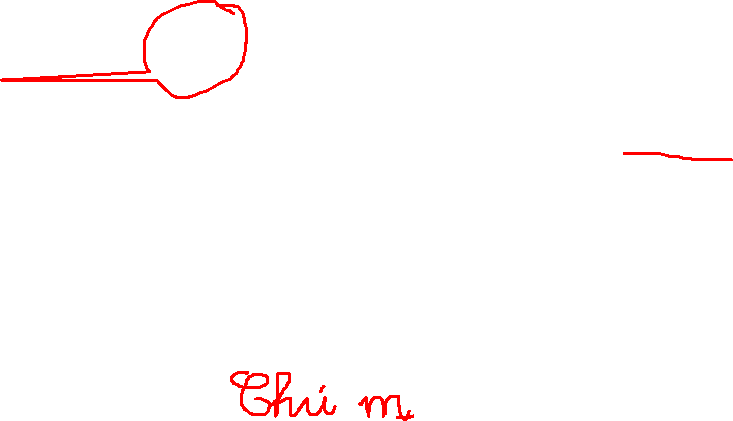 Chú m